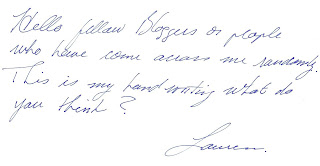 Hello fellow Bloggers or people
who have come across me randomly.
This is my hand writing what do
you think?
Lauren.